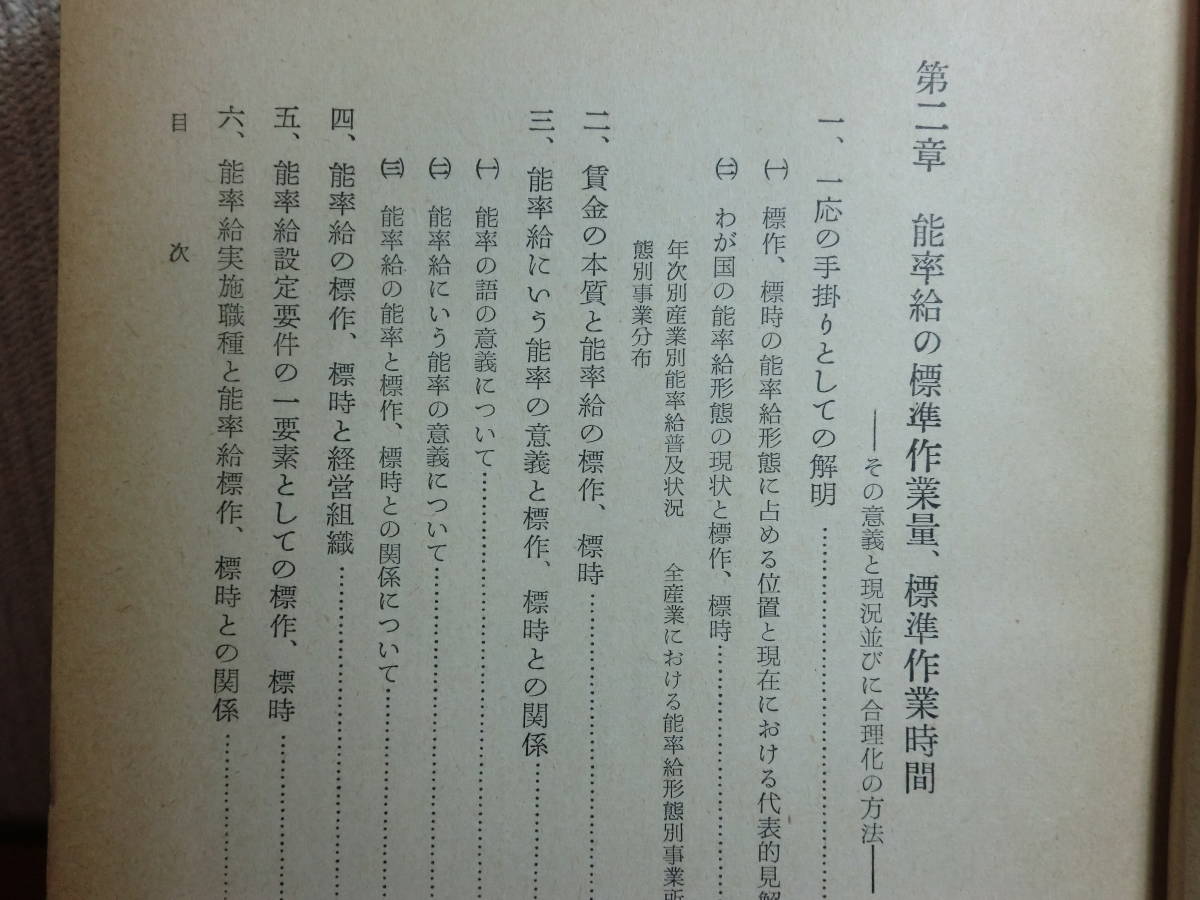 第二章 能率給の標準作業量、標準作業時間
――その意義と現況並びに合理化の方法――
一、一応の手掛りとしての解明……………………
㈠ 標作、標時の能率給形態に占める位置と現在における代表的見解
㈡ わが国の能率給形態の現状と標作、標時……………
年次別産業別能率給普及状況 全産業における能率給形態別事業所
態別事業分布
二、賃金の本質と能率給の標作、標時………………
三、能率給にいう能率の意義と標作、標時との関係………
㈠ 能率の語の意義について……………………
㈡ 能率給にいう能率の意義について…………………
㈢ 能率給の能率と標作、標時との関係について…………
四、能率給の標作、標時と経営組織…………………
五、能率給設定要件の一要素としての標作、標時………
六、能率給実施職種と能率給標作、標時との関係………
目次